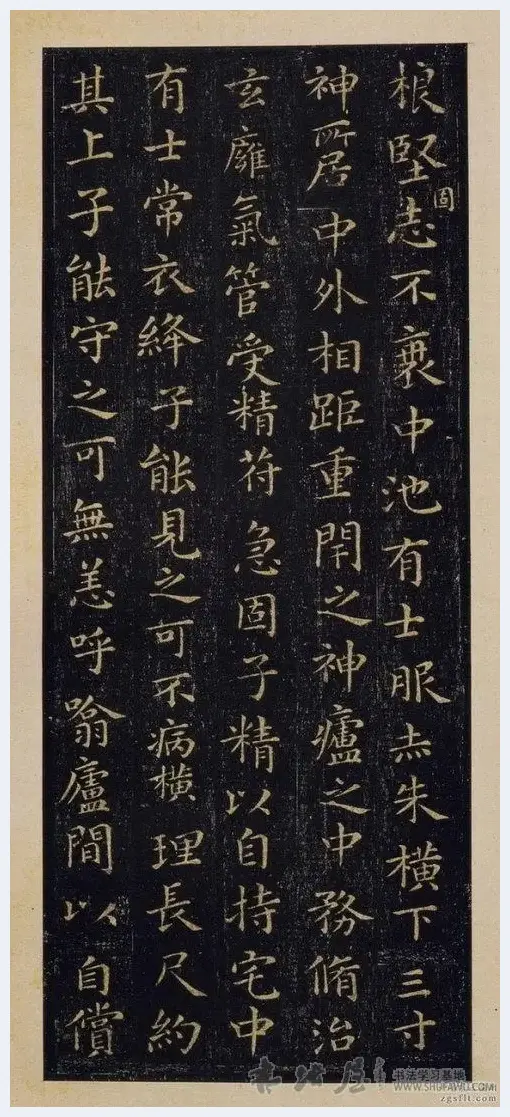 根堅志不衰中池有士服赤朱橫下三寸
固
神所居中外相距重閇之神廬之中務脩治
玄廱氣管受精苻急固子精以自持宅中
有士常衣絳子能見之可不病橫理長尺約
其上子能守之可無恙呼噏廬間以自償
书法学习基地
WWW.SHUFAWU.COM
zgsflt.com